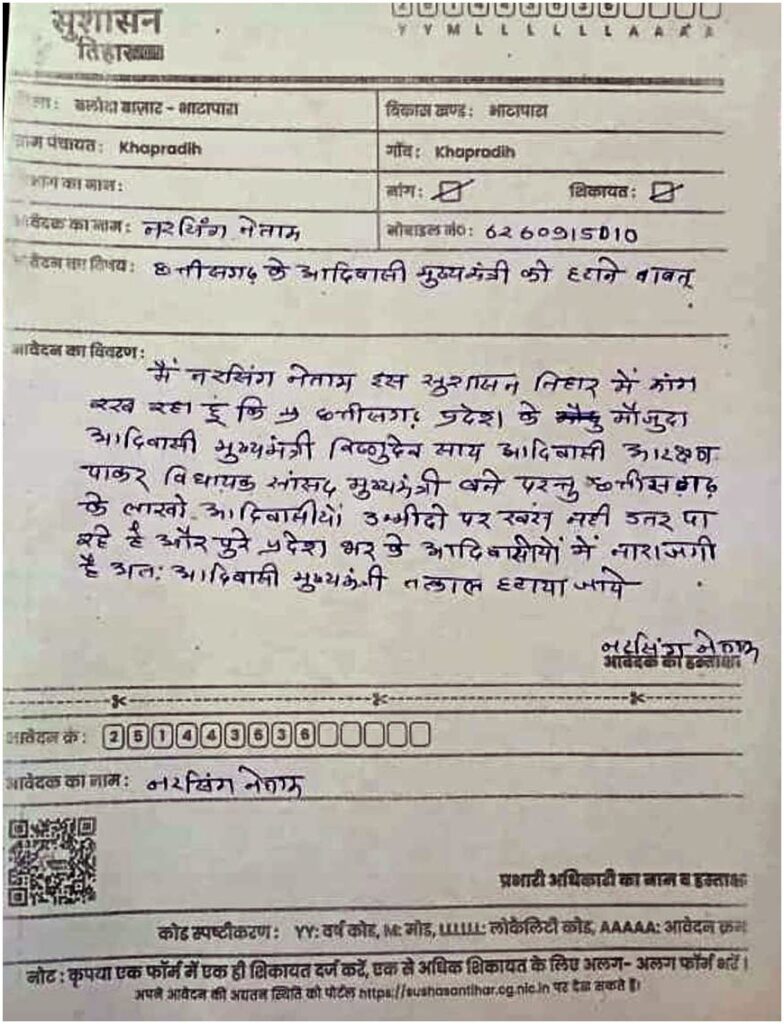 सुशासन
तिहार
Y Y M L L L L L L A A A A
बलौदा बाज़ार - भाटापारा
विकास खण्ड: भाटापारा
ग्राम पंचायत: Khapradih
गाँव: Khapradih
विभाग का नाम:
मांग:
शिकायत:
आवेदक का नाम: नरसिंग नेताम
मोबाइल no: 6260915010
आवेदन का विषय: छत्तीसगढ़ के आदिवासी मुख्यमंत्री को हटाने बाबत्
आवेदन का विवरण:
मैं नरसिंग नेताम इस सुशासन तिहार में मांग
रख रहा हूं कि छत्तीसगढ़ प्रदेश के मौजुदा
आदिवासी मुख्यमंत्री विष्णुदेव साय आदिवासी आरक्षण
पाकर विधायक सांसद मुख्यमंत्री बने परन्तु छत्तीसगढ़
के लाखो आदिवासीयों उम्मीदो पर नही उतर पा
रहे है और पुरे प्रदेश भर के आदिवासीयों में नाराजगी
है अतः आदिवासी मुख्यमंत्री तत्काल हटाया जाये
नरसिंग नेताम
आवेदक का हस्ताक्षर
आवेदन क्रं: 251443636
आवेदक का नाम: नरसिंग नेताम
प्रभारी अधिकारी का नाम व हस्ताक्षर
कोड स्पष्टीकरण: YY: वर्ष कोड, M: मोड, LLLLLL: लोकैलिटी कोड, AAAAA: आवेदन क्रम
नोट : कृपया एक फॉर्म में एक ही शिकायत दर्ज करें, एक से अधिक शिकायत के लिए अलग- अलग फॉर्म भरें।
अपने आवेदन की अद्यतन स्थिति को पोर्टल https://sushasantihar.cg.nic.in पर देख सकते है।